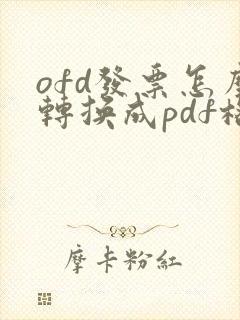 ofd發票怎麼
轉換成pdf格
摩卡粉紅